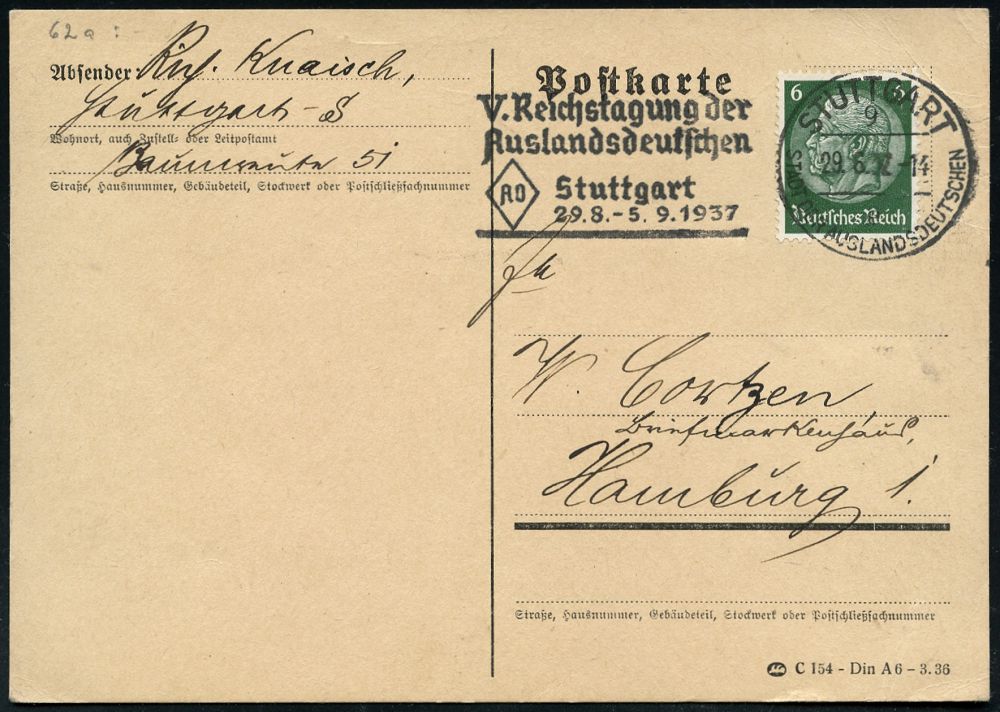 62a :-
Absender: Knaisch,
Stuttgart-S
Wohnort, auch Zustell- oder Leitpostamt
51
Straße, Hausnummer, Gebäudeteil, Stockwerk oder Postschließfachnummer
Postkarte
V. Reichstagung der
Auslandsdeutschen
AO
Stuttgart
29.8.-5.9.1937
6 6
STUTTGART
9
29.6.37-14
STADT DER AUSLANDSDEUTSCHEN
Deutsches Reich
W. Cortzen,
Briefmarkenhaus,
Hamburg 1.
Straße, Hausnummer, Gebäudeteil, Stockwerk oder Postschließfachnummer
C 154 - Din A 6 - 3.36